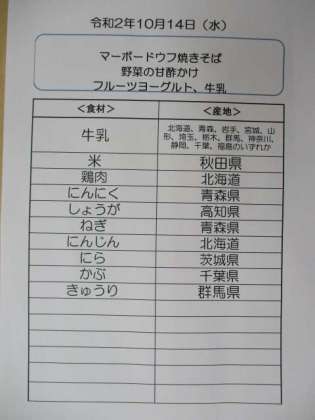 令和2年10月14日（水）
マーボードウフ焼きそば
野菜の甘酢かけ
フルーツヨーグルト、牛乳
＜食材＞ ＜産地＞
牛乳 北海道、青森、岩手、宮城、山
形、埼玉、栃木、群馬、神奈川、
静岡、千葉、福島のいずれか
米 秋田県
鶏肉 北海道
にんにく 青森県
しょうが 高知県
ねぎ 青森県
にんじん 北海道
にら 茨城県
かぶ 千葉県
きゅうり 群馬県